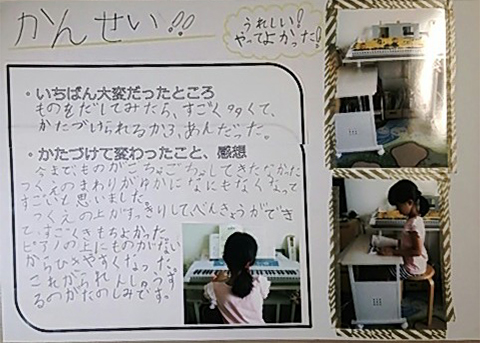 かんせい!!
うれしい!
やってよかった!
・いちばん大変だったところ
ものをだしてみたら、すごく多くて、
かたづけられるか
・かたづけて変わったこと、感想
今までものがごちゃごちゃしてきたなかた
つくえのまわりがゆかになにもなくなって
すごいと思いました。
つくえの上がすっきりしてべんきょうができ
て、すごくきもちよかった。
ピアノの上にものがない
からひきやすくなった。
これかられんしゅうす
るのがたのしみです。